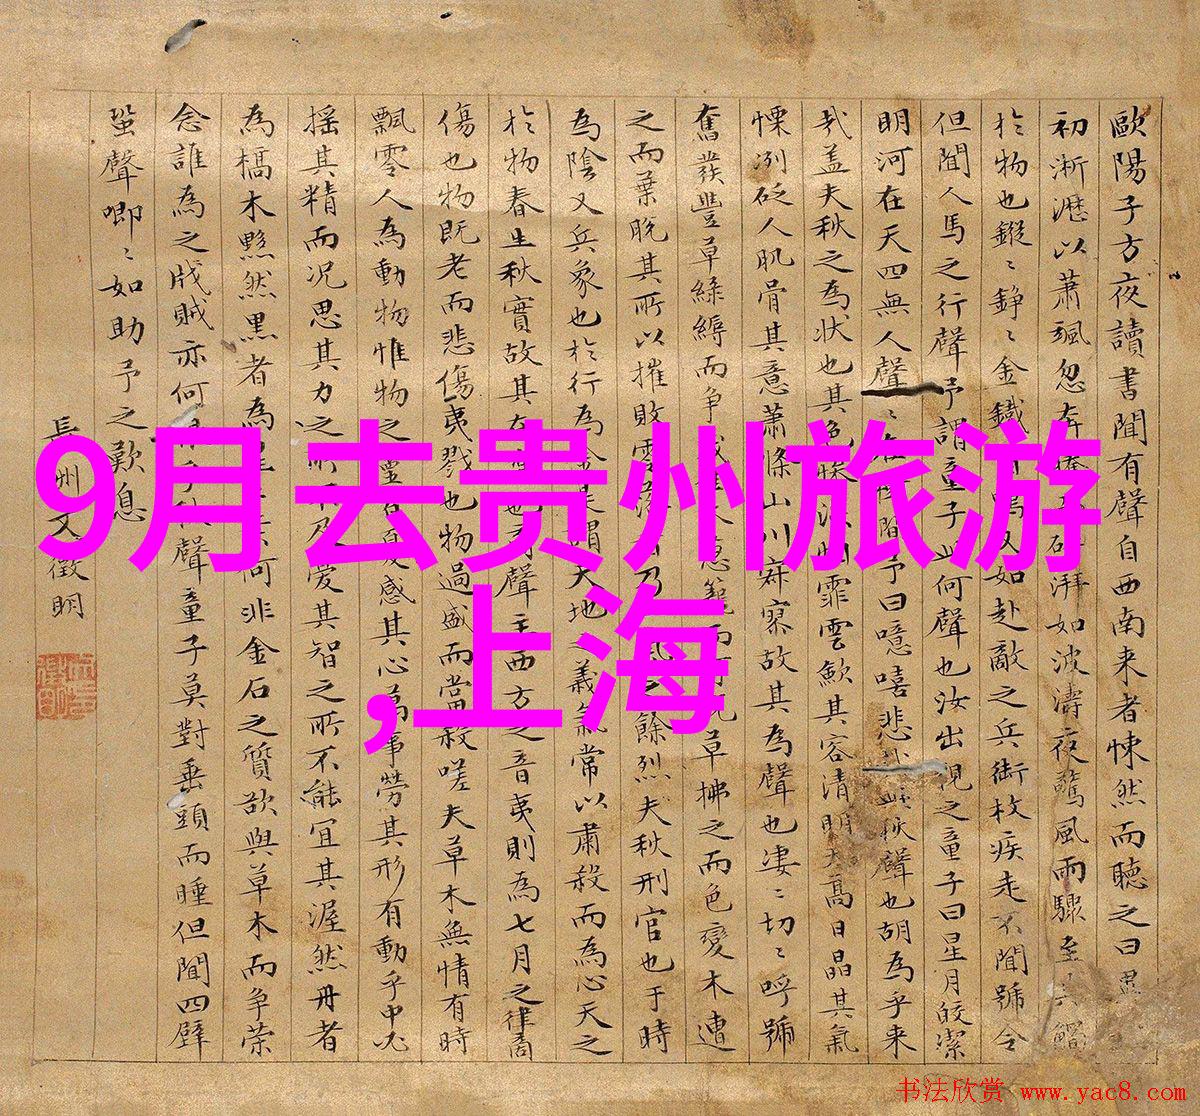 歐陽子方夜讀書聞有聲自西南来者悚然而聽之曰異
初淅瀝以蕭颯忽奔
湃如波濤夜驚風雨驟至其觸
於物也鏦〻錚〻金鐵
鳴又如赴敵之兵銜枚疾走不聞號令
但聞人馬之行聲予謂童子此何聲也汝出視之童子曰星月皎潔
明河在天四無人聲〻在
予曰噫嘻悲
秋聲也胡為乎来
哉盖夫秋之為状也其色
霏雲歛其容清明天高日晶其氣
慄冽砭人肌骨其意蕭條山川寂寥故其為聲也凄〻切〻呼號
奮發豐草綠縟而争
草拂之而色變木遭
之而葉脱其所以摧敗零落
乃
氣
餘烈夫秋刑官也于時
為陰又兵象也於行為金
是謂天地之義氣常以肅殺而為心天之
於物春生秋實故其在
也
聲主西方之音夷則為七月之律商
傷也物既老而悲傷夷戮也物過盛而當殺嗟夫草木無情有時
飄零人為動物惟物之靈百憂感其心萬事勞其形有動乎中必
摇其精而况思其力之所不及憂其智之所不能宜其渥然丹者
為槁木黟然黑者為星
何非金石之質欲與草木而争榮
念誰為之戕賊亦何
聲童子莫對垂頭而睡但聞四壁
蛩聲唧〻如助予之歎息
長洲文徵明
9月去贵州旅游
,上海
书法欣赏 www.yac8.com